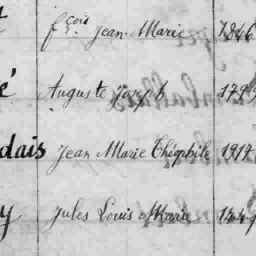 fçois Jean Marie 1846
é Auguste Joseph
dais Jean Marie Théophile 1917
y Jules Louis Marie